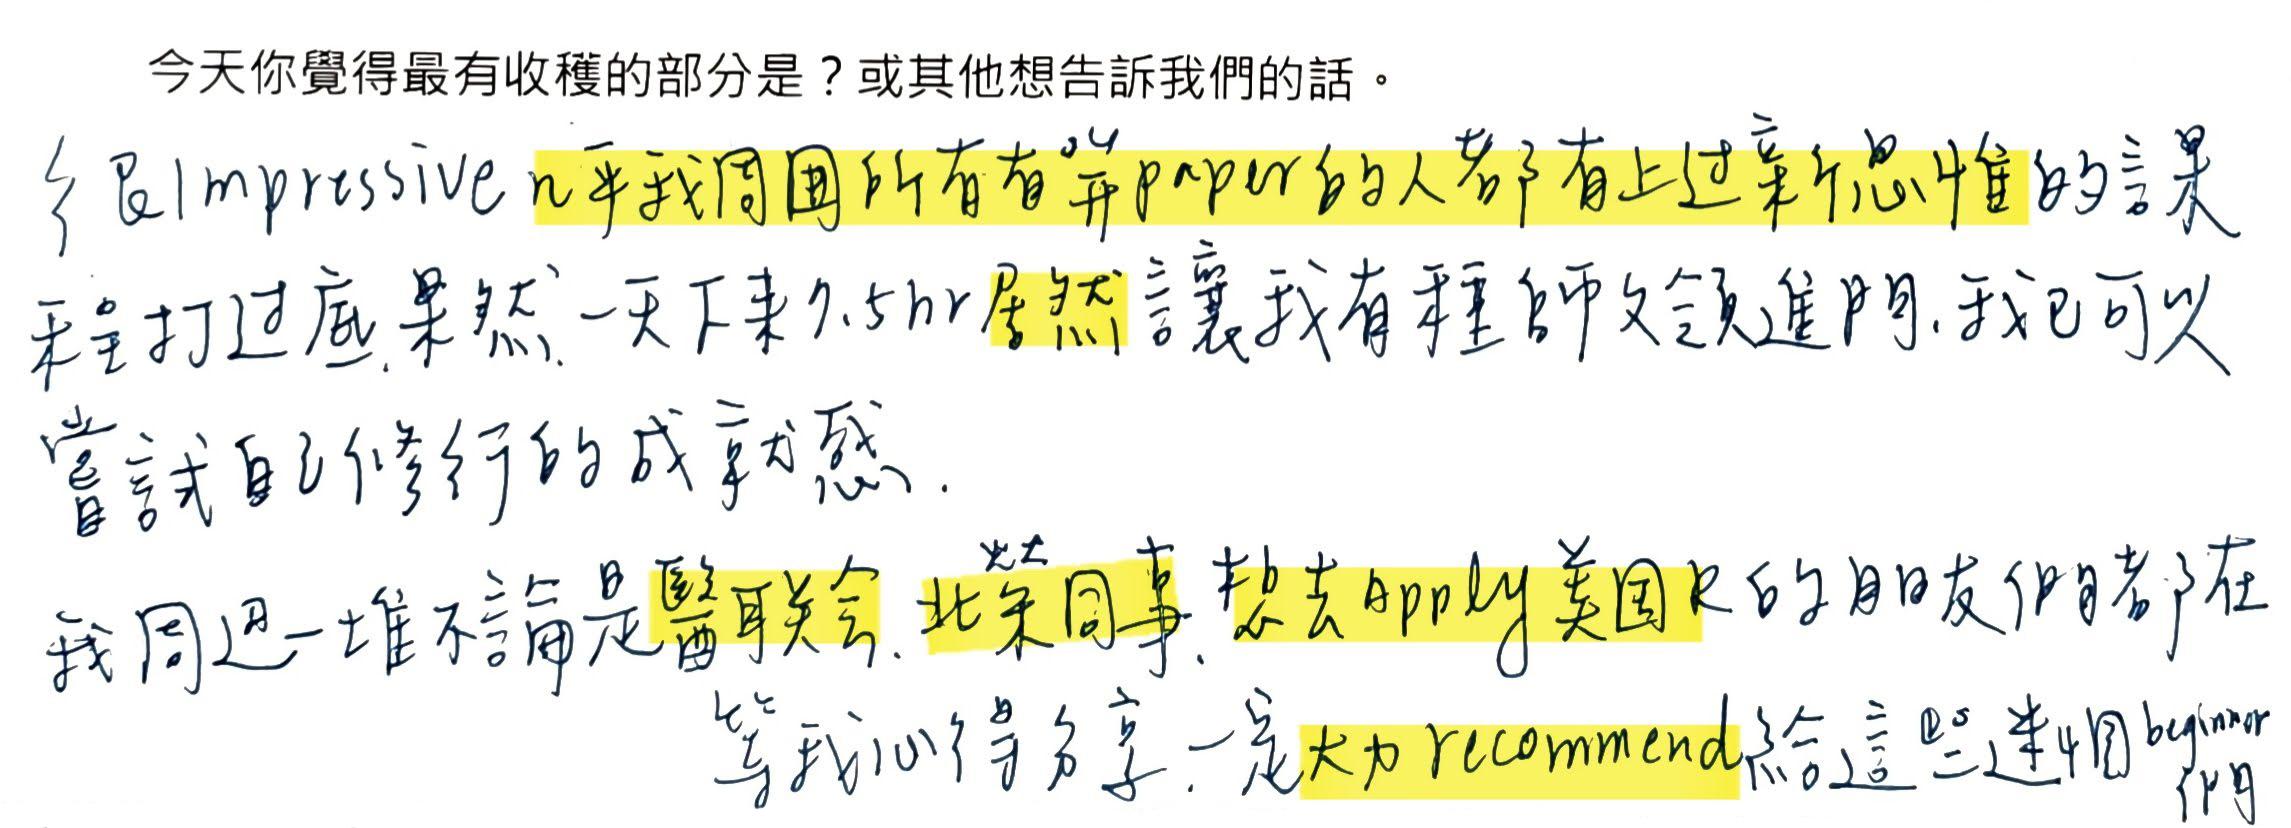 今天你覺得最有收穫的部分是？或其他想告訴我們的話。
很Impressive 几乎我周圍所有有發paper的人都有上过新思惟的課
程打过底.果然.一天下来7.5hr居然讓我有種師父領進門.我已可以
嘗試自己修行的成就感.
我周遭一堆不論是醫联会.北荣同事.想去Apply美国R的朋友們都在
等我心得分享.一定大力recommend給這些迷惘beginner
們